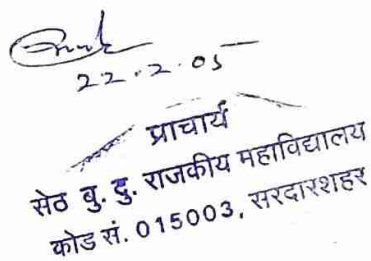 22.2.05
प्राचार्य
सेठ बु. दु. राजकीय महाविद्यालय
कोड सं. 015003, सरदारशहर